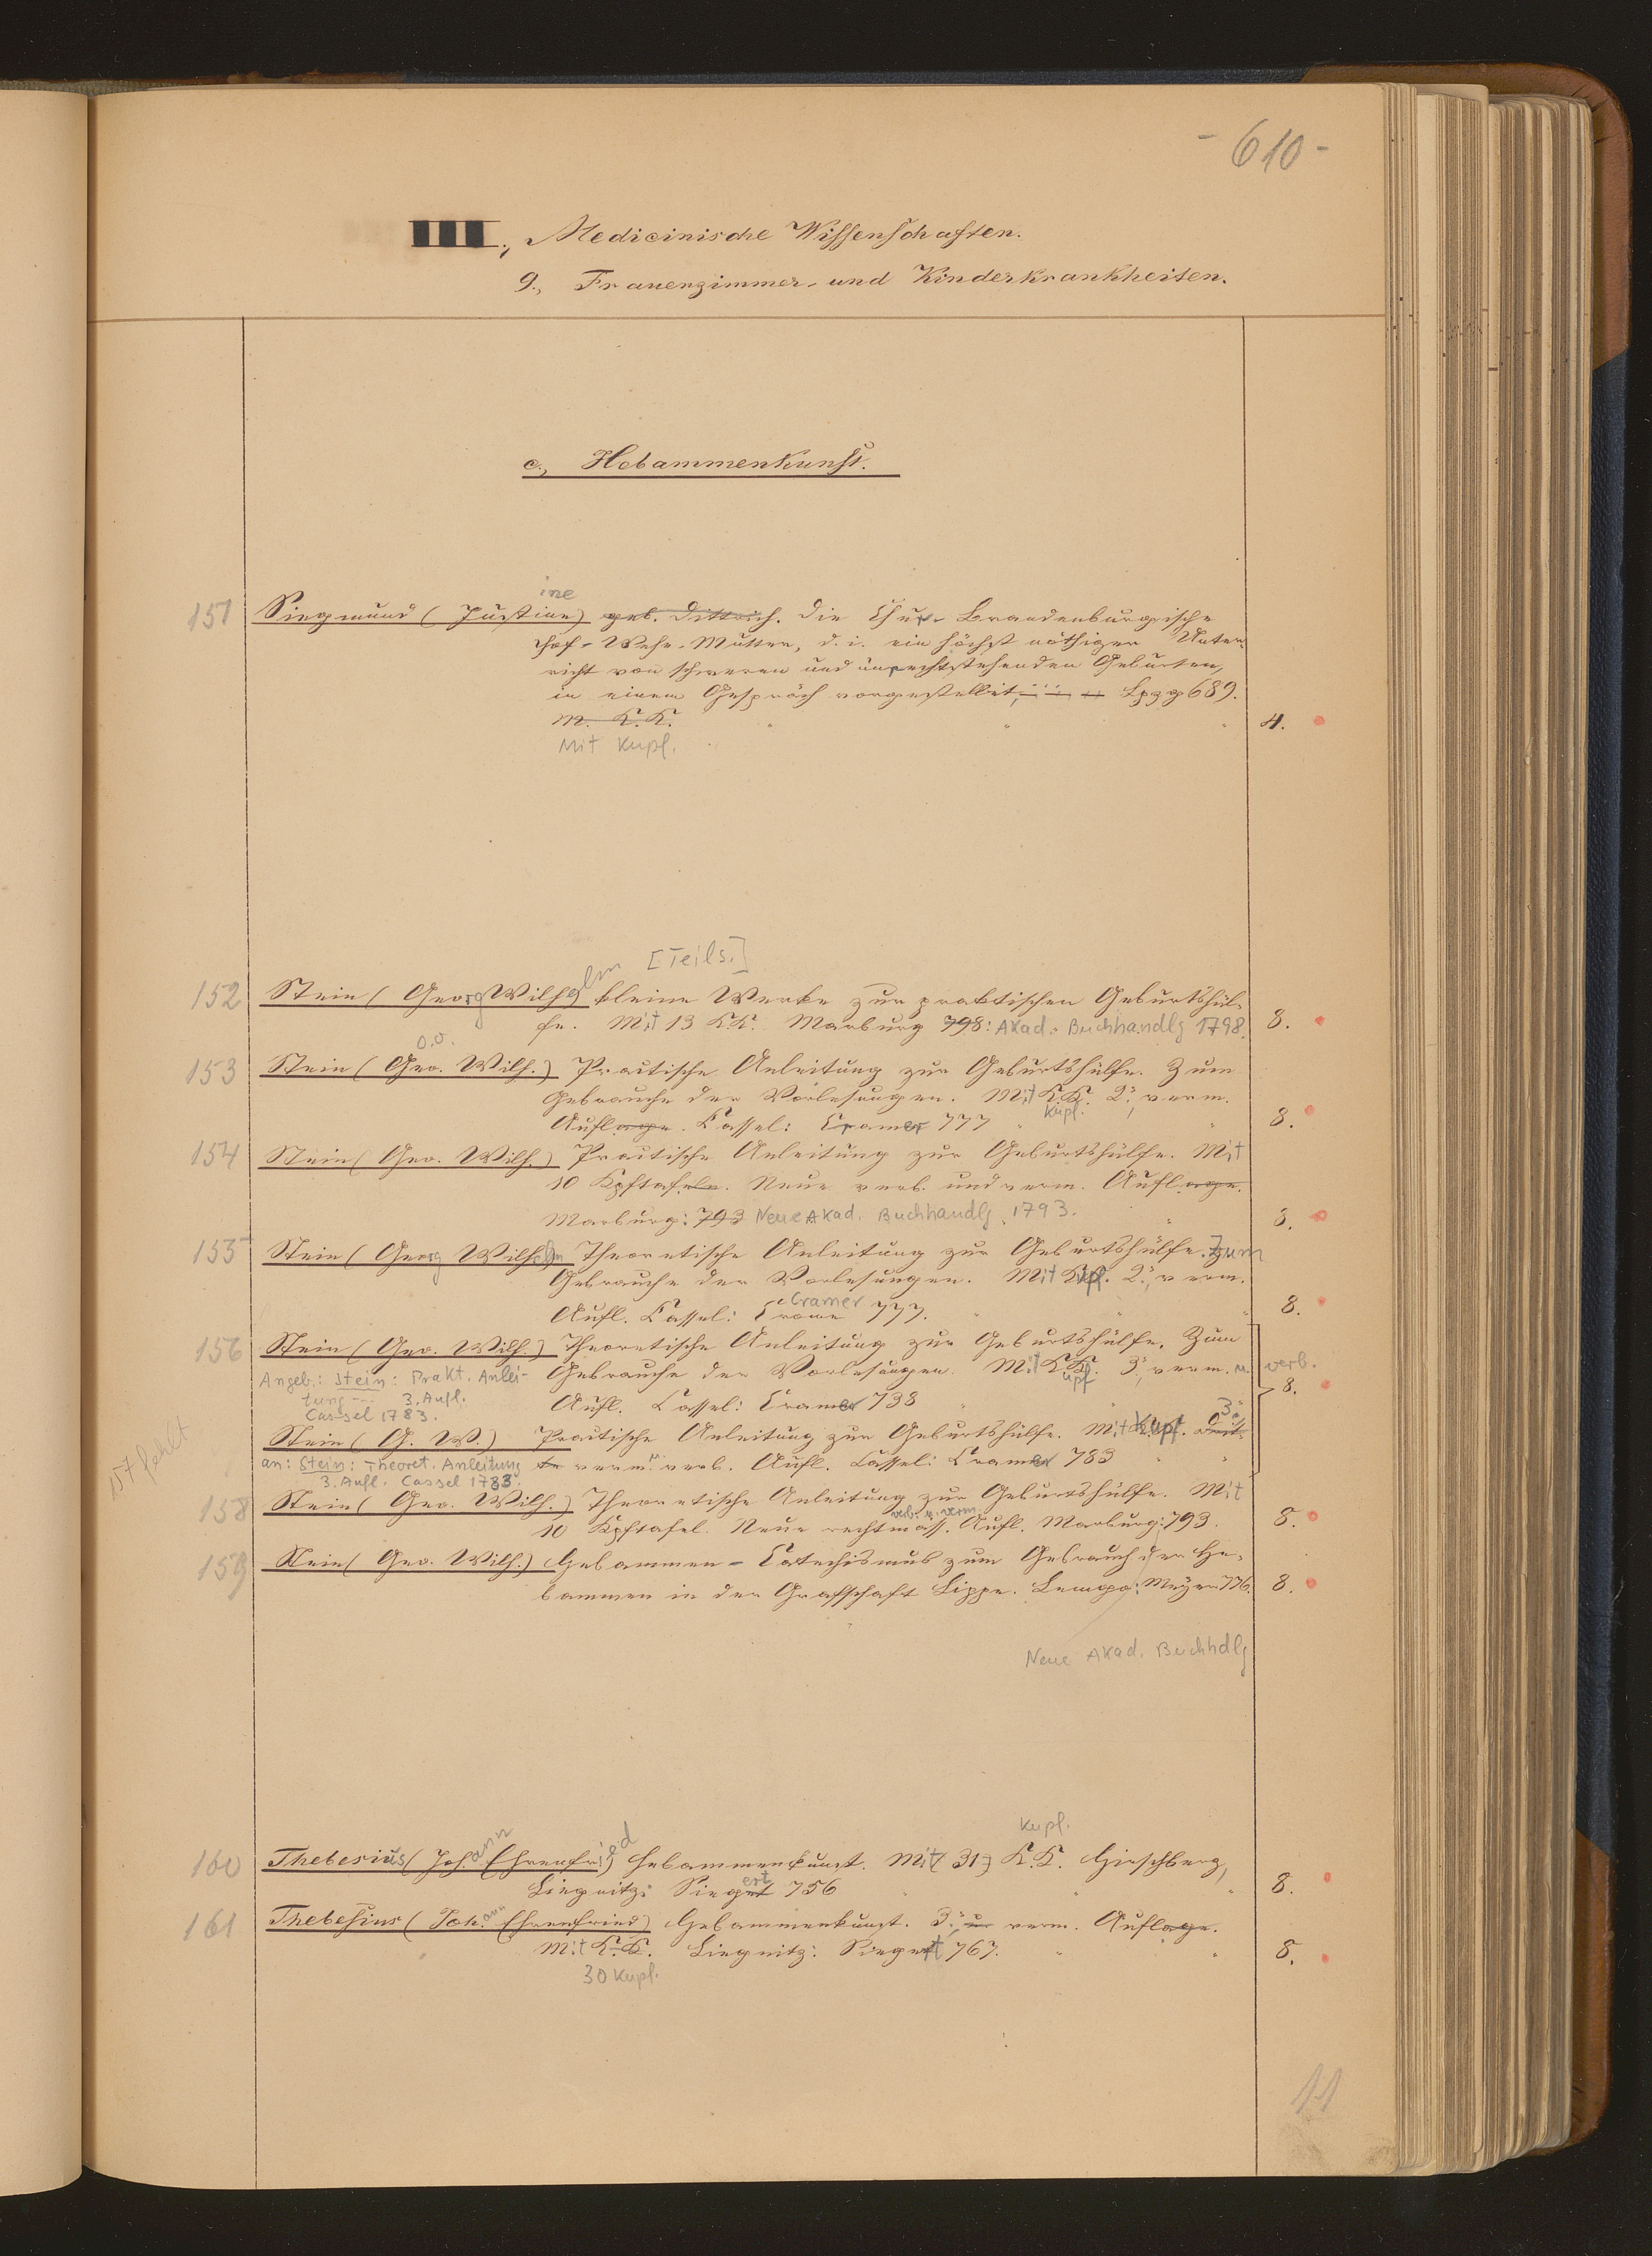 - 610 -
III., Medicinische Wissenschaften.
9., Frauenzimmer- und Kinderkrankheiten.
c., Hebammenkunst.
ine
151 Siegmund (Justine) geb. Dittrich. Die Chur-Brandenburgische
Hof-Wehe-Mutter, d. i. ein höchst nöthiger Unter-
richt von schweren und unrechtstehenden Geburten,
in einem Gespräch vorgestellet, Lpzg 689.
M. K.K. 4.
Mit Kupf.
[Teils.]
152 Stein (Georg Wilhelm kleine Werke zur praktischen Geburtshül-
fe. Mit 13 KK. Marburg 798: Akad. Buchhandlg 1798. 8.
o.O.
153 Stein (Geo. Wilh.) Practische Anleitung zur Geburtshülfe. Zum
Gebrauche der Vorlesungen. Mit K.K. 2., verm.
Kupf.
Auflage. Cassel: Cramer 777 8.
154 Stein (Geo. Wilh.) Practische Anleitung zur Geburtshülfe. Mit
10 Kpftafeln. Neue verb. und verm. Auflage.
Marburg: 793 Neue Akad. Buchhandlg. 1793. 8.
155 Stein (Georg Wilhelm Theoretische Anleitung zur Geburtshülfe. Zum
Gebrauche der Vorlesungen. Mit Kupf. 2., verm.
Cramer
Aufl. Cassel: 777. 8.
156 Stein (Geo. Wilh.) Theoretische Anleitung zur Geburtshülfe. Zum
Angeb.: Stein: Prakt. Anlei- Gebrauche der Vorlesungen. Mit KK. 3., verm. u. verb.
upf
tung --- 3. Aufl. Aufl. Cassel: Cramer 783 8.
Cassel 1783.
157 fehlt
3.
Stein (G. W.) Practische Anleitung zur Geburtshülfe. Mit Kupf. Drit-
an: Stein: Theoret. Anleitung te verm. u. verb. Aufl. Cassel: Cramer 783
3. Aufl. Cassel 1783.
158 Stein (Geo. Wilh.) Theoretische Anleitung zur Geburtshülfe. Mit
verb. u. verm.
10 Kpftafel. Neue rechtmäss. Aufl. Marburg: 793. 8.
159 Stein (Geo. Wilh.) Hebammen-Catechismus zum Gebrauch der He-
bammen in der Grafschaft Lippe. Lemgo: Meyer 776. 8.
Neue Akad. Buchhdlg
Kupf.
160 Thebesius (Johann Ehrenfried Hebammenkunst. Mit 31 K.K. Hirschberg,
Liegnitz: Siegert 756 8.
161 Thebesius (Johann Ehrenfried) Hebammenkunst. 3., u. verm. Auflage.
Mit K.K. Liegnitz: Siegert 767. 8.
30 Kupf.
11